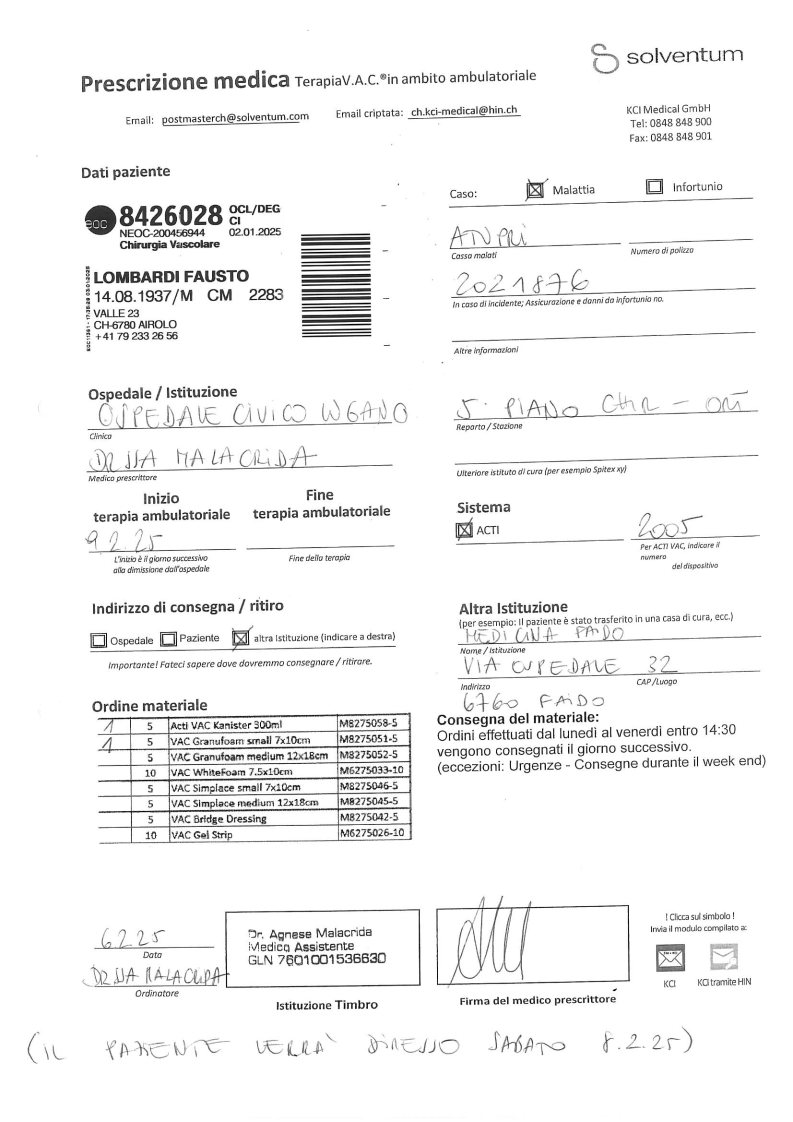 solventum
Prescrizione medica TerapiaV.A.C.®in ambito ambulatoriale
Email: postmasterch@solventum.com Email criptata: ch.kci-medical@hin.ch
KCI Medical GmbH
Tel: 0848 848 900
Fax: 0848 848 901
Dati paziente
eoc 8426028 OCL/DEG
CI
NEOC-200456944 02.01.2025
Chirurgia Vascolare
LOMBARDI FAUSTO
14.08.1937/M CM 2283
VALLE 23
CH-6780 AIROLO
+41 79 233 26 56
Caso: Malattia Infortunio
Cassa malati Numero di polizza
2021876
In caso di incidente; Assicurazione e danni da infortunio no.
Altre informazioni
Ospedale / Istituzione
OSPEDALE CIVICO LUGANO
Clinica
DR SSA MALACRIDA
Medico prescrittore
5° PIANO CHIR -
Reparto / Stazione
Ulteriore istituto di cura (per esempio Spitex xy)
Inizio
terapia ambulatoriale
Fine
terapia ambulatoriale
9 2 25
L'inizio è il giorno successivo
alla dimissione dall'ospedale
Fine della terapia
Sistema
ACTI 2005
Per ACTI VAC, indicare il
numero
del dispositivo
Indirizzo di consegna / ritiro
Ospedale Paziente altra Istituzione (indicare a destra)
Importante! Fateci sapere dove dovremmo consegnare / ritirare.
Altra Istituzione
(per esempio: Il paziente è stato trasferito in una casa di cura, ecc.)
MEDICINA FAIDO
Nome / Istituzione
VIA OSPEDALE 32
Indirizzo CAP /Luogo
6760 FAIDO
Ordine materiale
1 5 Acti VAC Kanister 300ml M8275058-5
1 5 VAC Granufoam small 7x10cm M8275051-5
5 VAC Granufoam medium 12x18cm M8275052-5
10 VAC WhiteFoam 7.5x10cm M6275033-10
5 VAC Simplace small 7x10cm M8275046-5
5 VAC Simplace medium 12x18cm M8275045-5
5 VAC Bridge Dressing M8275042-5
10 VAC Gel Strip M6275026-10
Consegna del materiale:
Ordini effettuati dal lunedì al venerdì entro 14:30
vengono consegnati il giorno successivo.
(eccezioni: Urgenze - Consegne durante il week end)
6 2 25
Data
DR SSA MALACRIDA
Ordinatore
Dr. Agnese Malacrida
Medico Assistente
GLN 7601001536630
Istituzione Timbro
Firma del medico prescrittore
! Clicca sul simbolo !
Invia il modulo compilato a:
KCI KCI tramite HIN
(IL PAZIENTE VERRÀ DIMESSO SABATO 8.2.25)